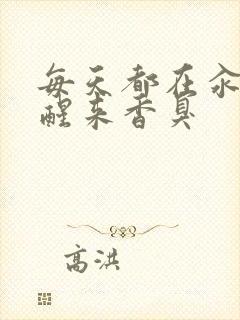 每天都在汆
醒来香臭
高洪